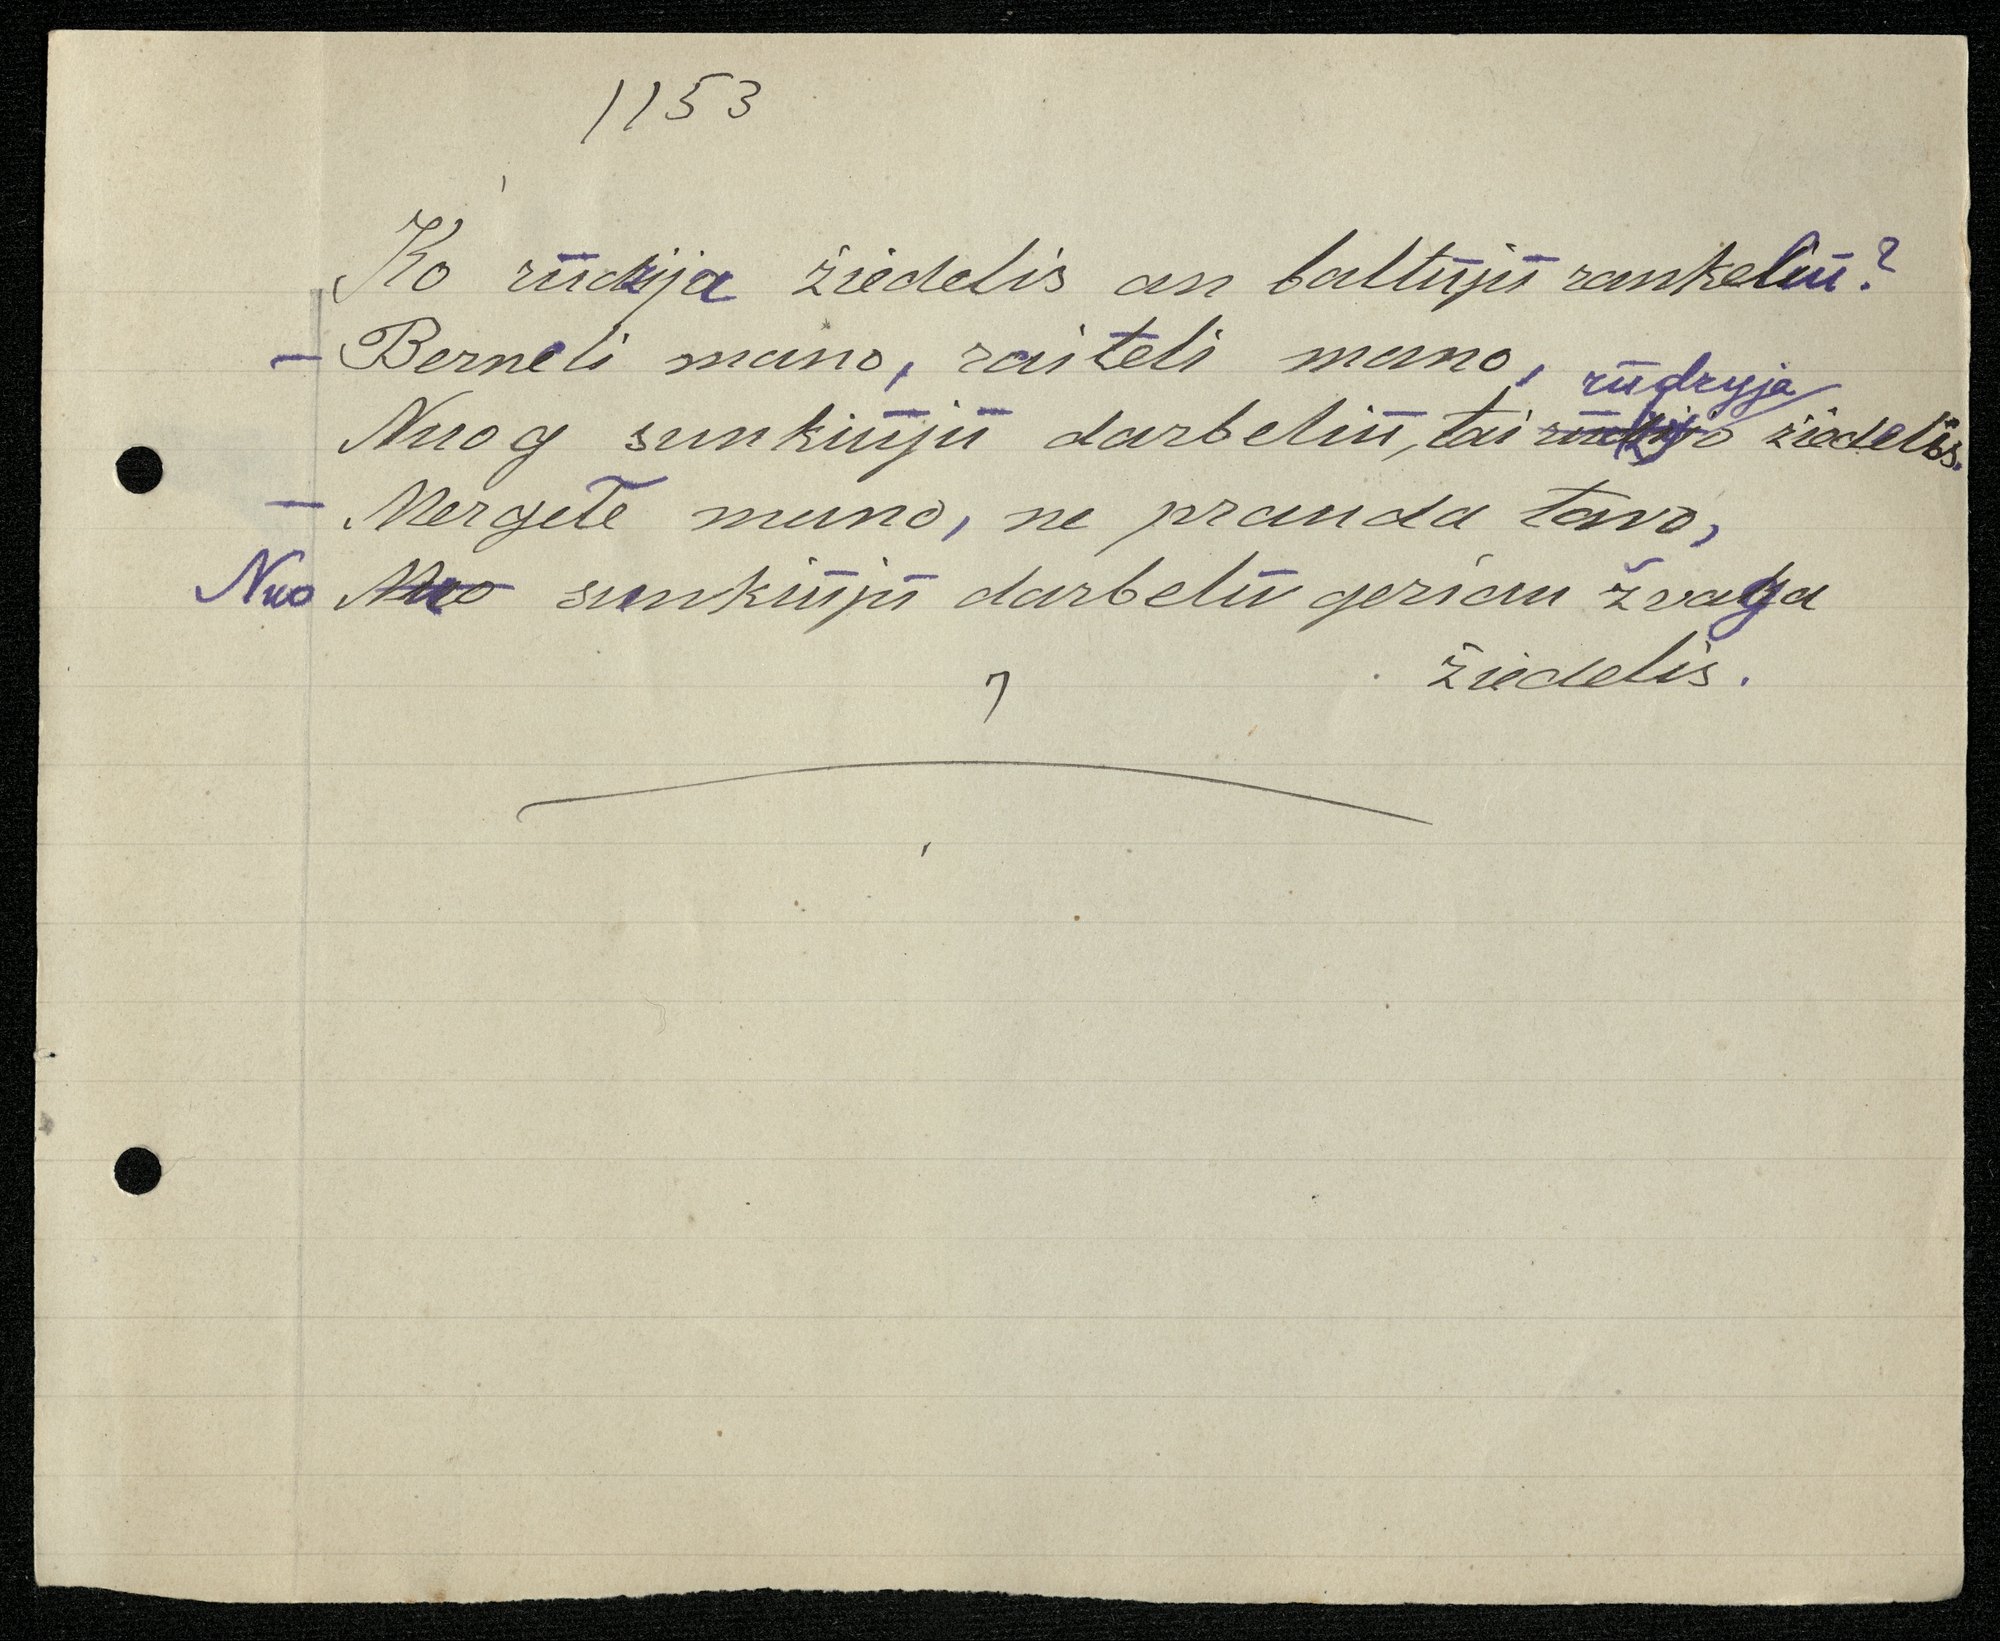 1153
Ko rūdzija žiedelis an baltūjū rankeliū?
– Berneli mano, raiteli mano,
rūdzyja
Nuog sunkiūjū darbeliū, tai žiedelis.
– Mergele mano, ne prauda tavo,
Nuo Nuo sunkiūjū darbeliū geriau žvaga
žiedelis.
7